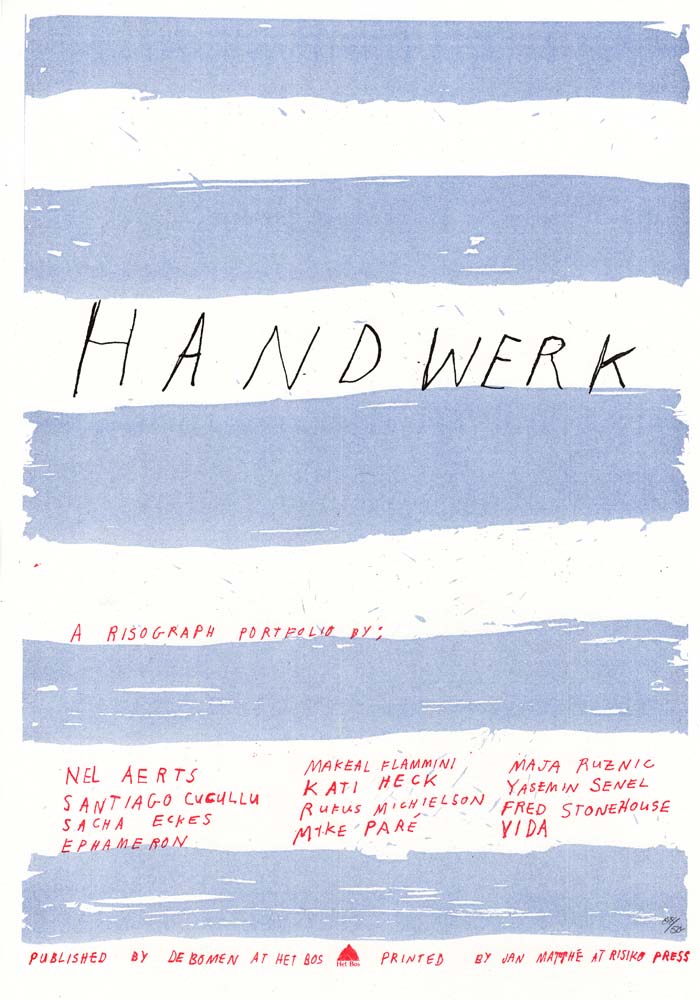 HANDWERK
A RISOGRAPH PORTFOLIO BY;
NEL AERTS
SANTIAGO CUCULLU
SACHA ECKES
EPHAMERON
MAKEAL FLAMMINI
KATI HECK
RUFUS MICHIELSON
MIKE PARÉ
MAJA RUZNIC
YASEMIN SENEL
FRED STONEHOUSE
VIDA
PUBLISHED BY DE BOMEN AT HET BOS Het Bos PRINTED BY JAN MATTHÉ AT RISIKO PRESS